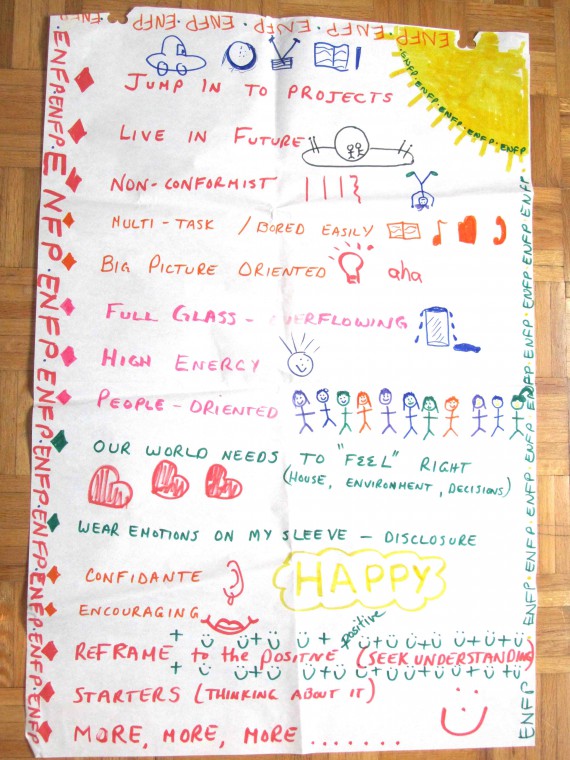 ENFP · ENFP · ENFP · ENFP · ENFP
ENFP·ENFP·ENFP·ENFP·ENFP
JUMP IN TO PROJECTS
LIVE IN FUTURE
NON-CONFORMIST
MULTI-TASK / BORED EASILY
BIG PICTURE ORIENTED aha
FULL GLASS - OVERFLOWING
HIGH ENERGY
PEOPLE-ORIENTED
OUR WORLD NEEDS TO "FEEL" RIGHT
(HOUSE, ENVIRONMENT, DECISIONS)
WEAR EMOTIONS ON MY SLEEVE - DISCLOSURE
CONFIDANTE
HAPPY
ENCOURAGING
positive
REFRAME to the POSITIVE (SEEK UNDERSTANDING)
STARTERS (THINKING ABOUT IT)
MORE, MORE, MORE .......
ENFP·ENFP·ENFP·ENFP·ENFP·ENFP·ENFP·ENFP·ENFP·ENFP
ENFP·ENFP·ENFP·ENFP·ENFP·ENFP·ENFP·ENFP·ENFP